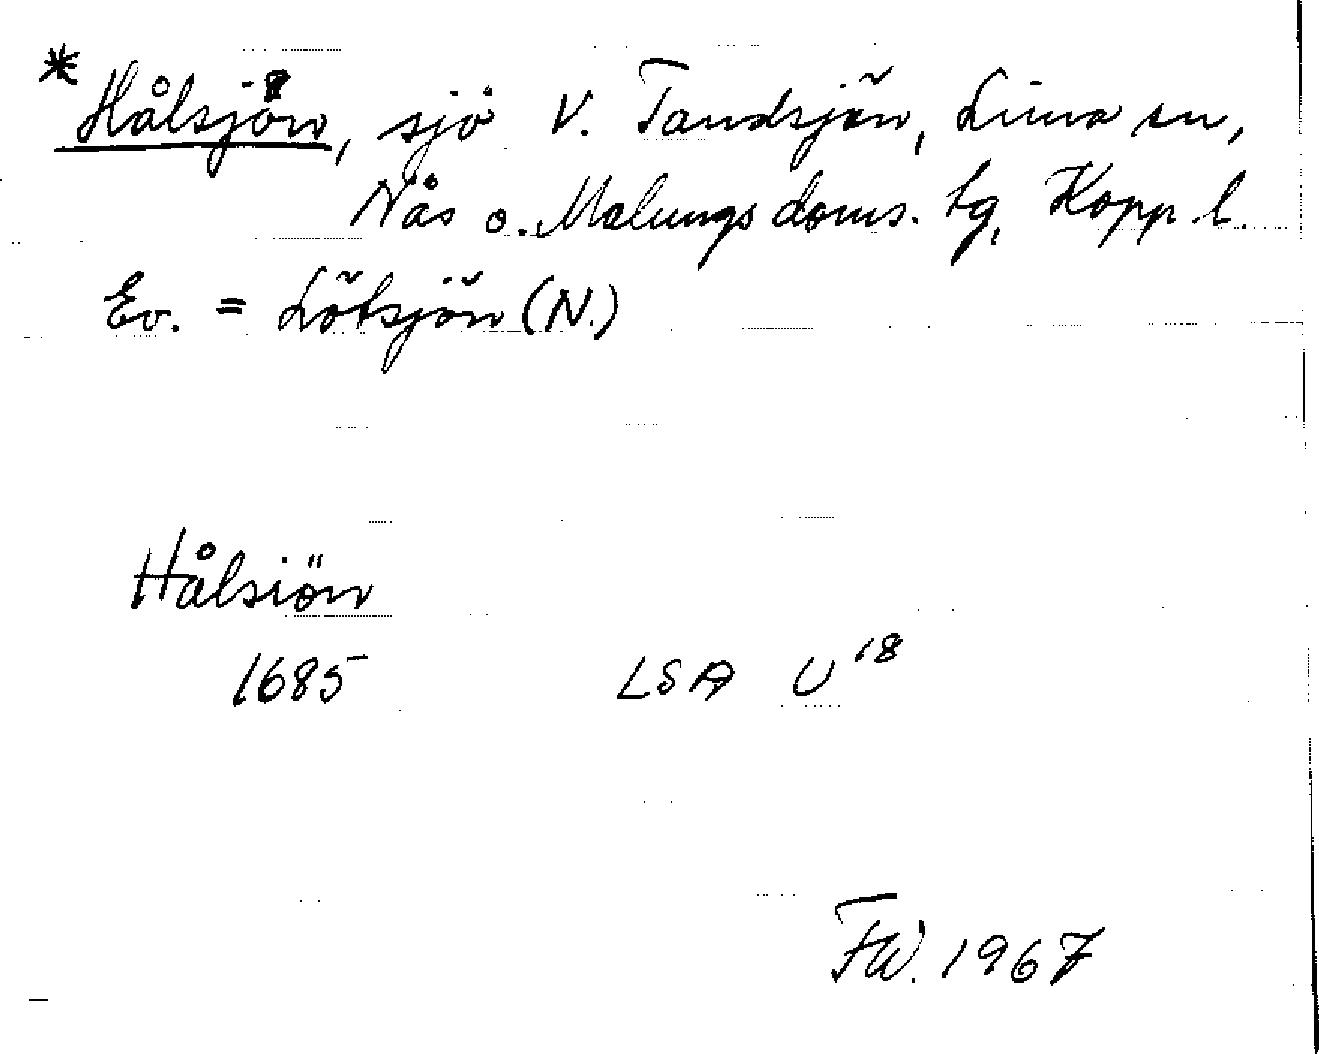 * Hålsjön, sjö V. Tandsjön, Lima sn,
Nås o. Malungs doms. tg, Kopp l.
Ev. = Lötsjön (N.)
Hålsiön
1685 LSA U18
FW. 1967